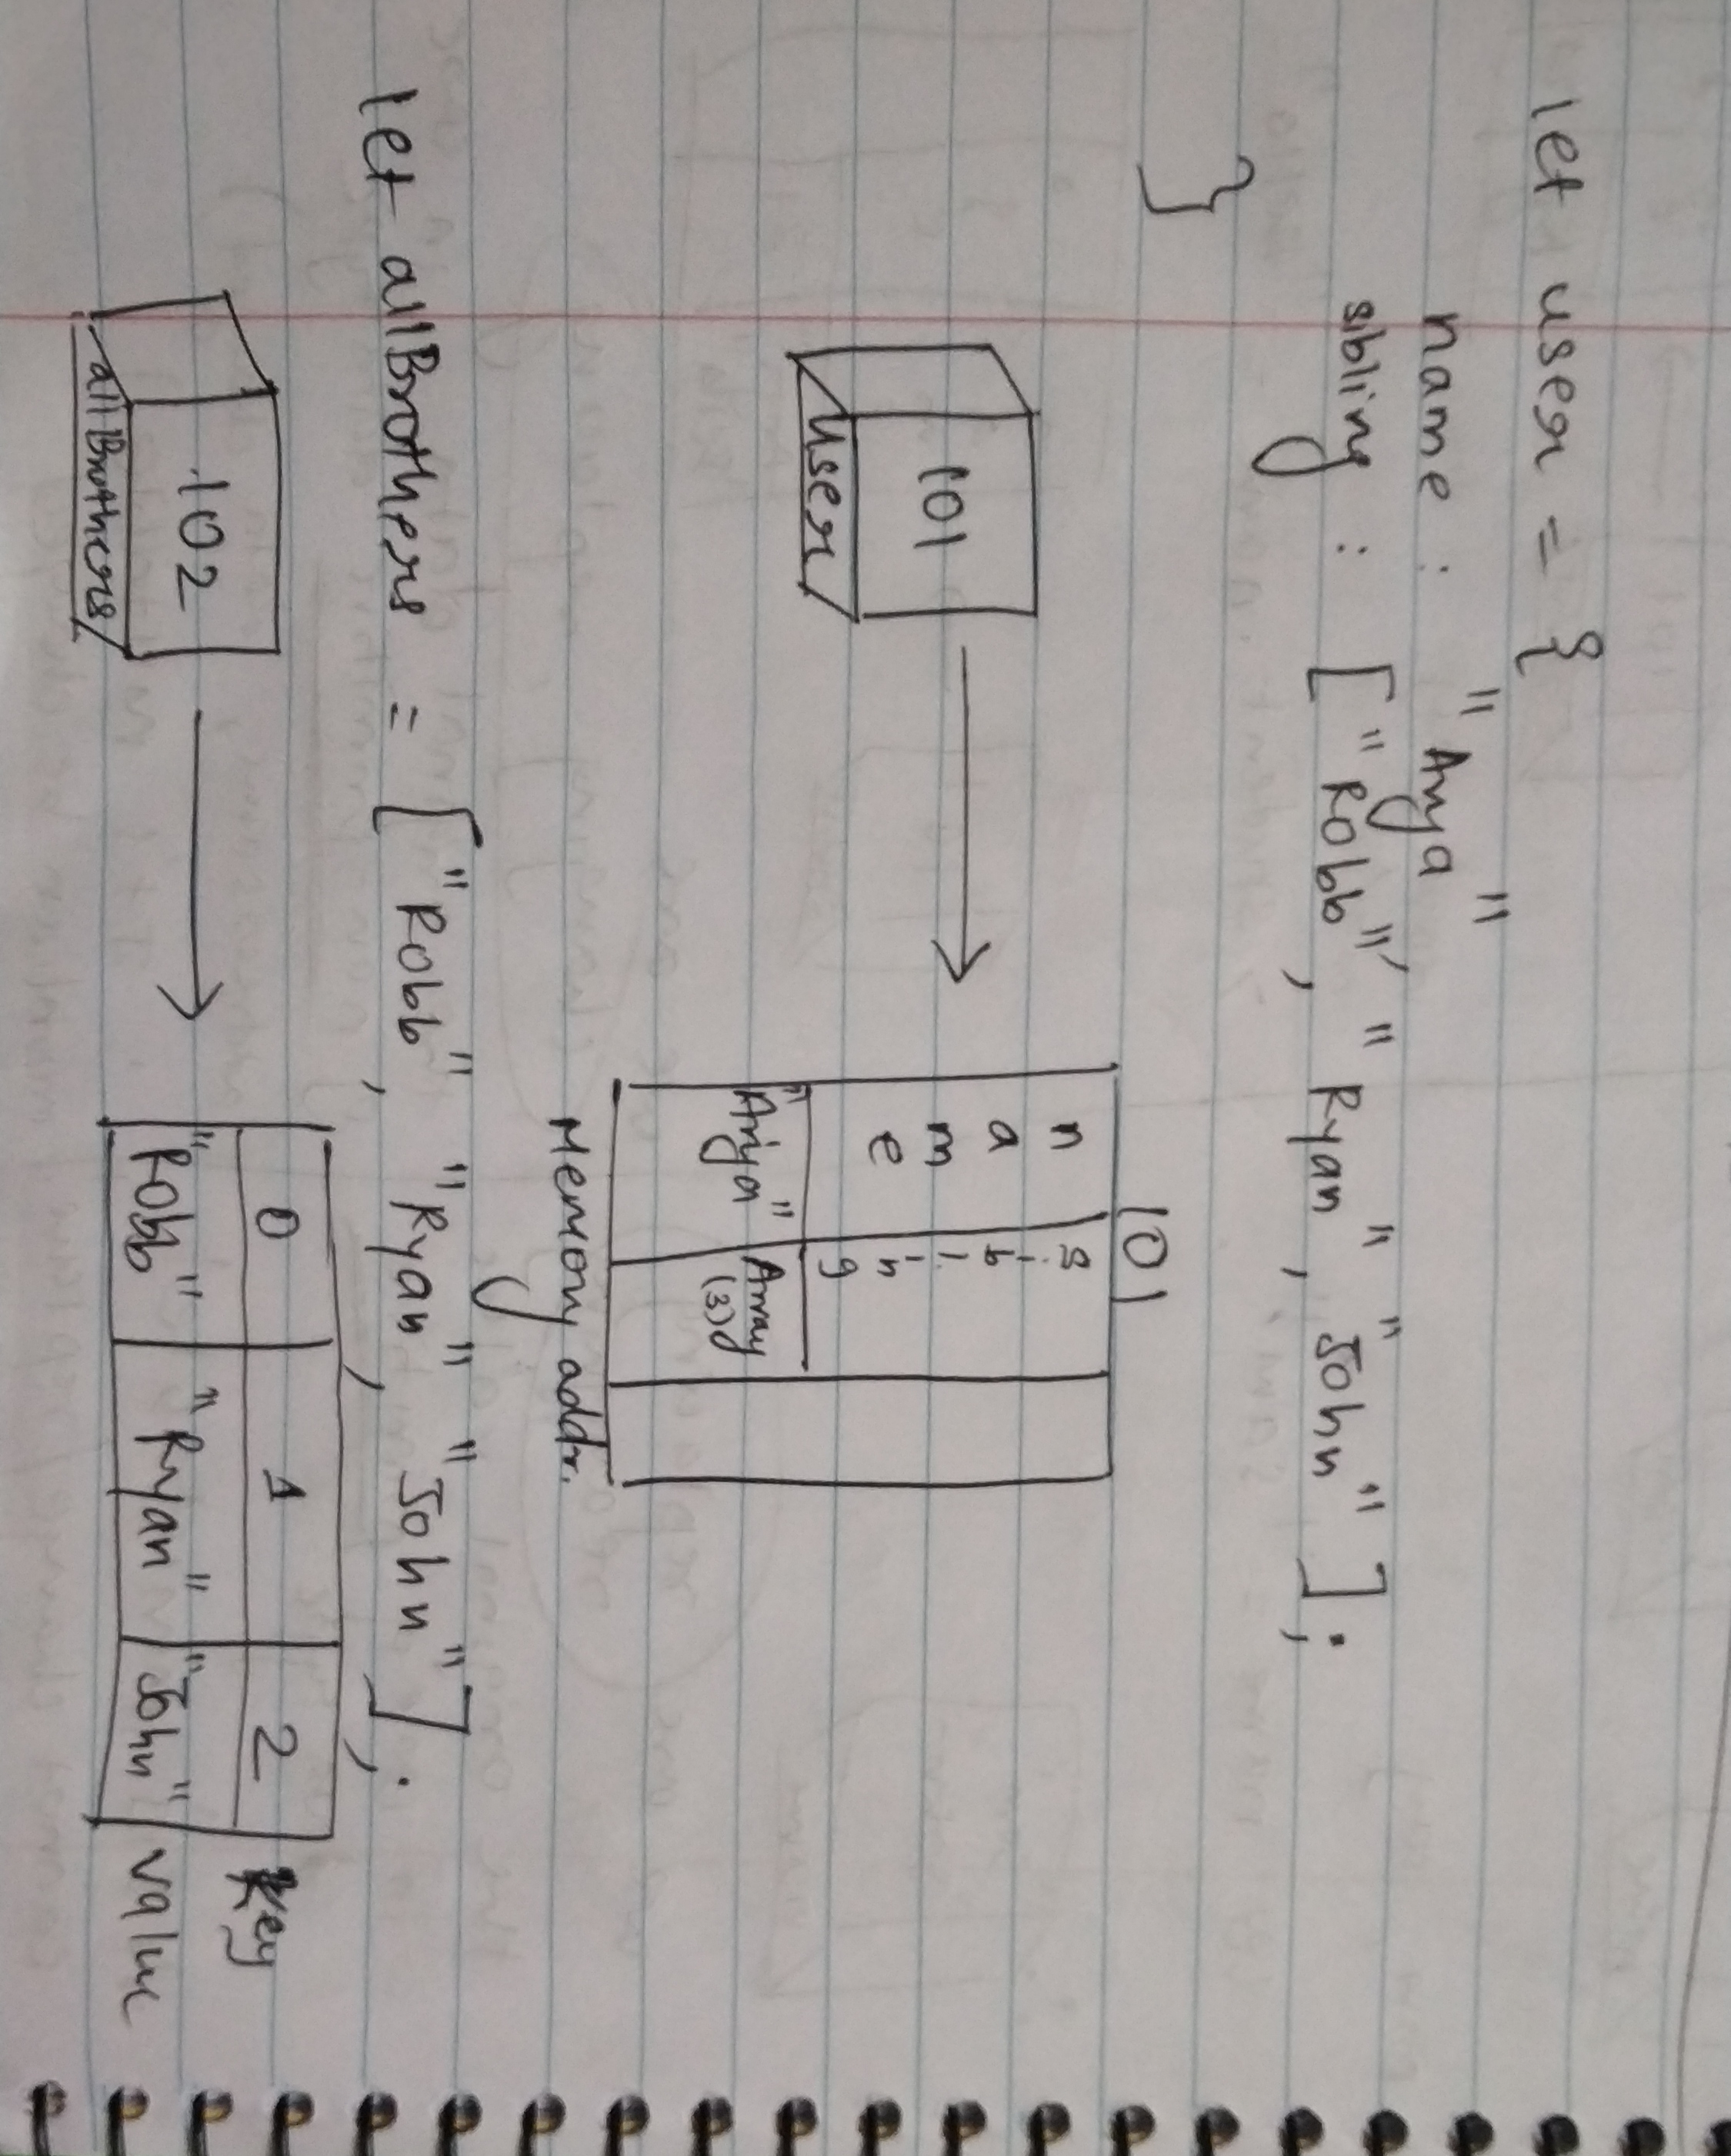 let user = {
name : "Arya"
sibling : ["Robb", "Ryan", "John"];
}
101
101
user
name
sibling
"Ariya"
Array (3)
Memory addr.
let allBrothers = ["Robb", "Ryan", "John"];
102
allBrothers
0 1 2 Key
"Robb" "Ryan" "John" value